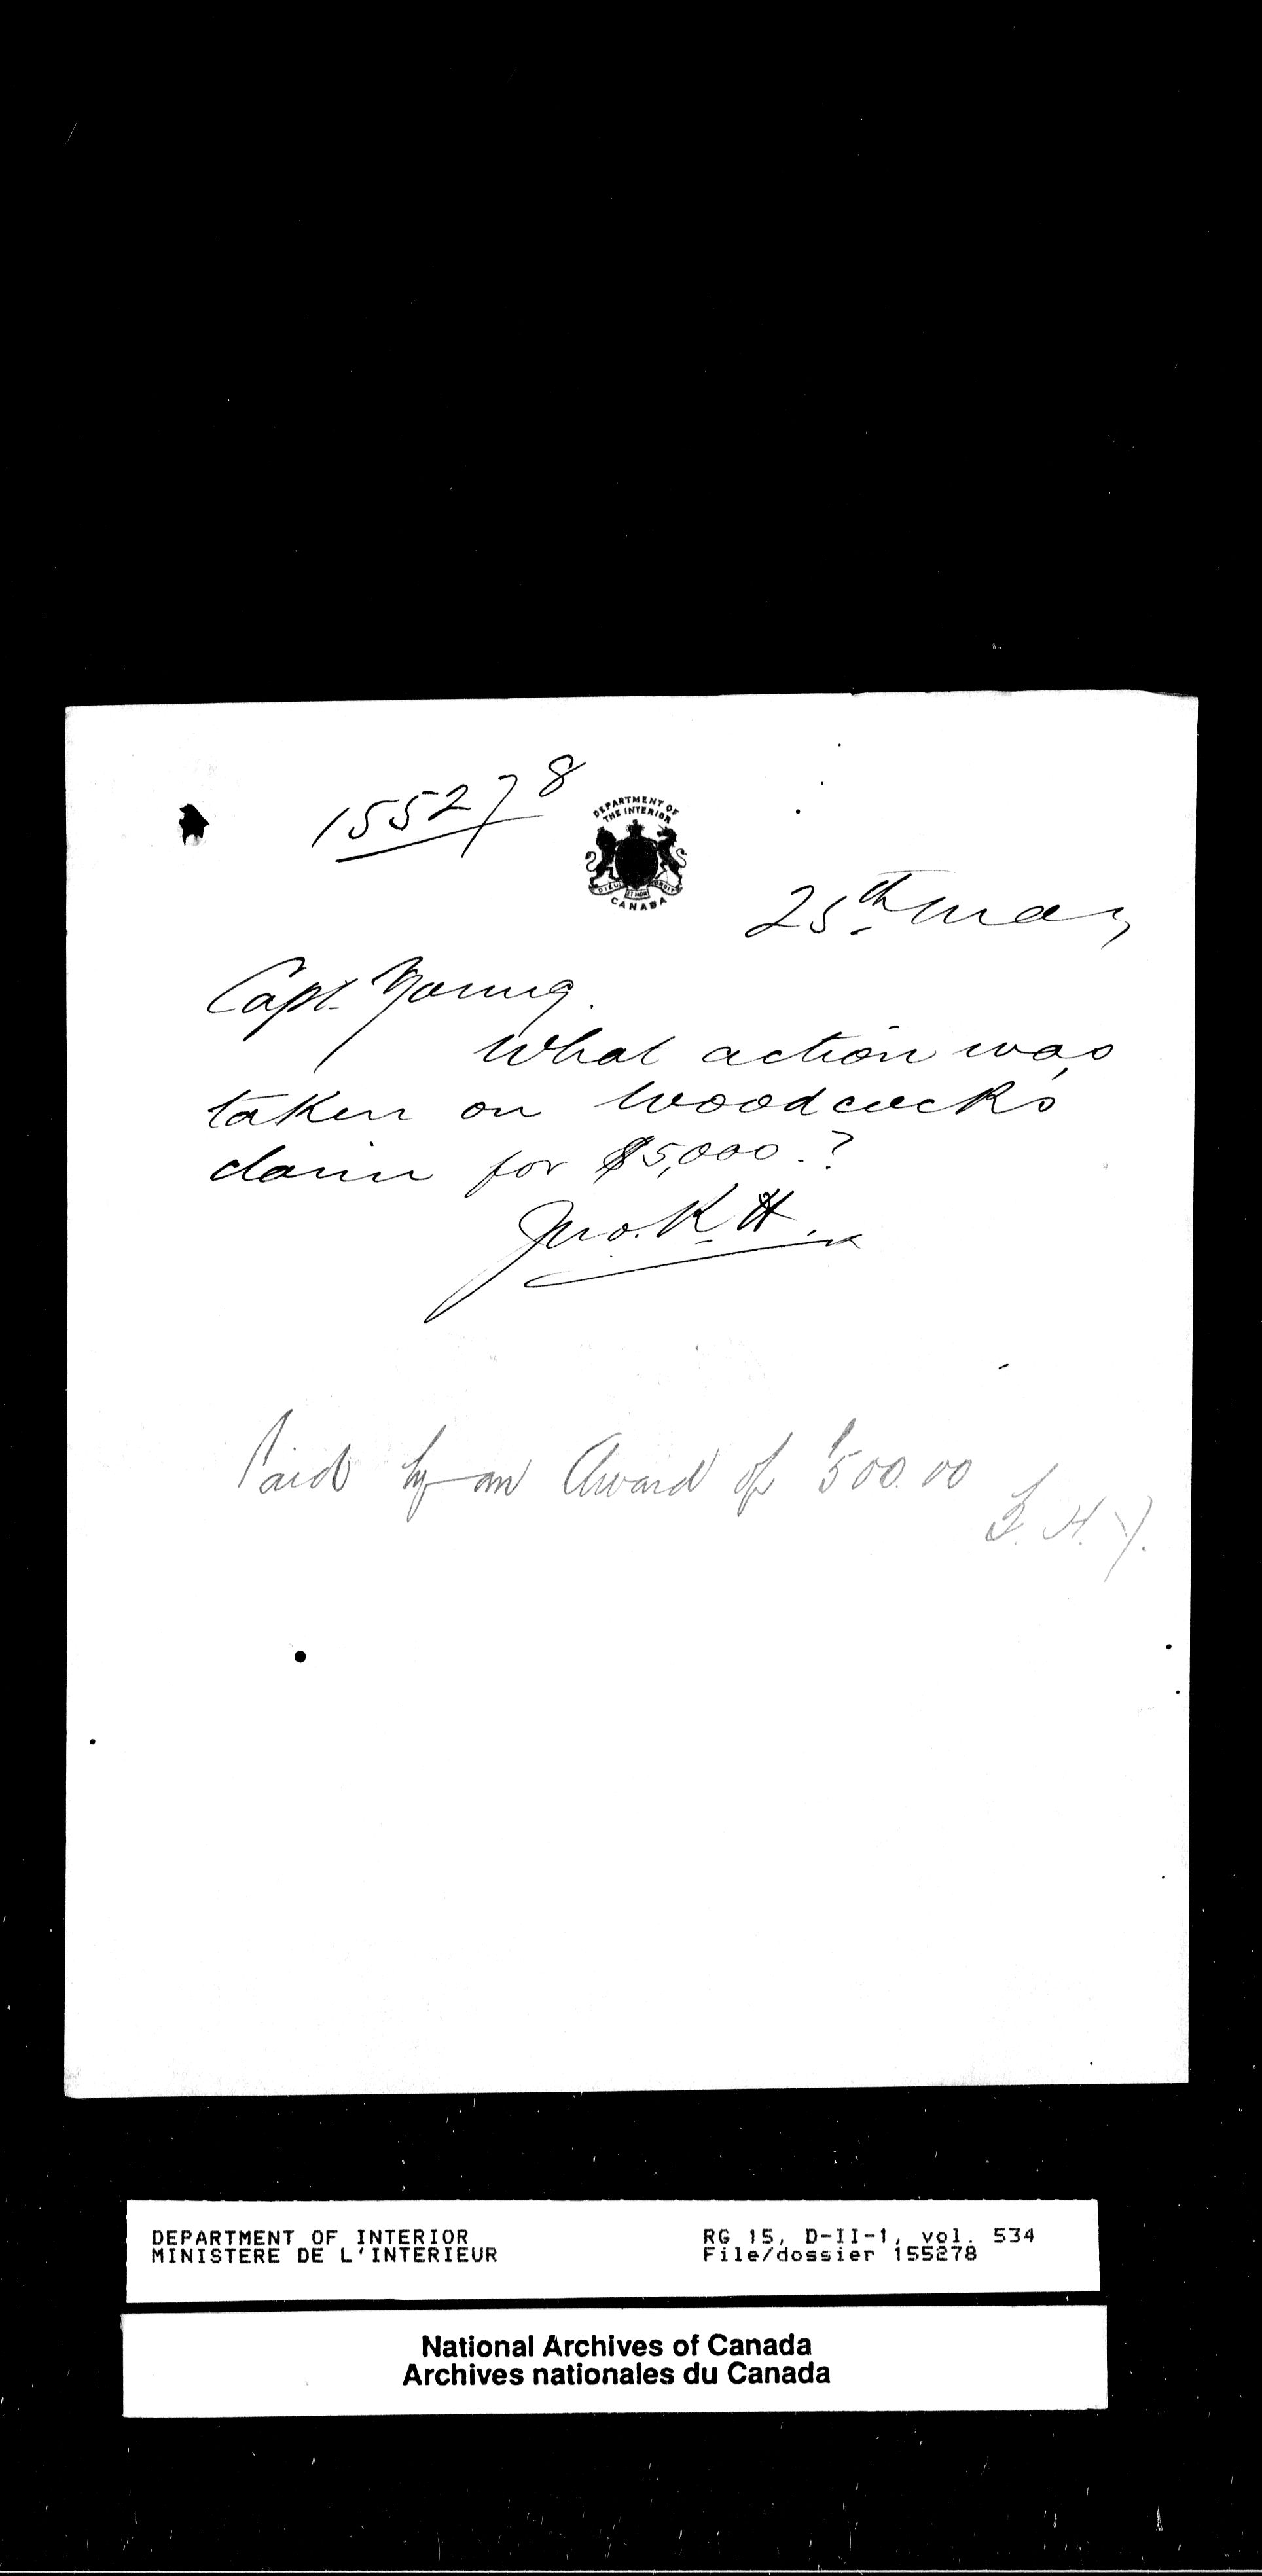 155278
DEPARTMENT OF
THE INTERIOR
DIEU ET MON DROIT
CANADA
25th May
Capt. Young.
What action was
taken on Woodcock's
claim for $5,000.?
Jno. K. H.
Paid by an Award of $500.00
F. H. Y.
DEPARTMENT OF INTERIOR
MINISTERE DE L'INTERIEUR
RG 15, D-II-1, vol. 534
File/dossier 155278
National Archives of Canada
Archives nationales du Canada